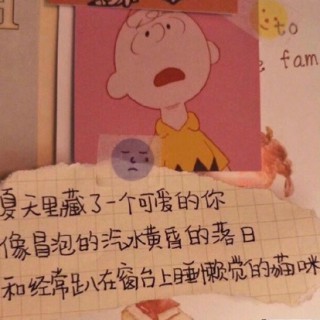 to
fam
夏天里藏了一个可爱的你
像冒泡的汽水黄昏的落日
和经常趴在窗台上睡懒觉的猫咪